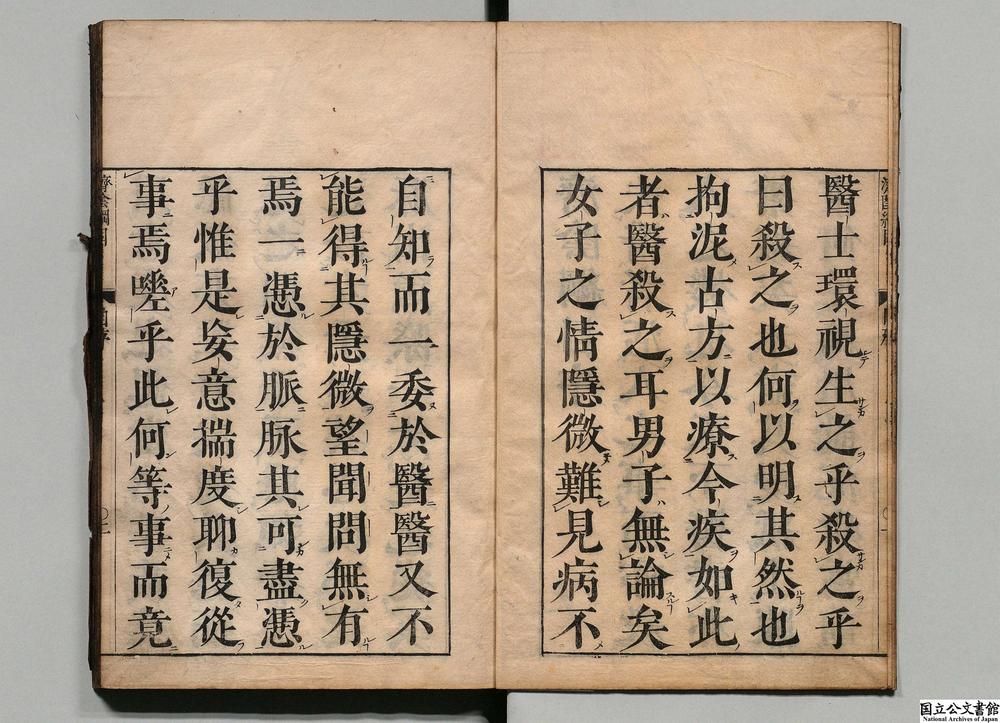 醫士環視生之乎殺之乎
曰殺之也何以明其然也
拘泥古方以療今疾如此
者醫殺之耳男子無論矣
女子之情隱微難見病不
自知而一委於醫醫又不
能得其隱微望聞問無有
焉一憑於脈脉其可盡憑
乎惟是妄意揣度聊復從
事焉嗟乎此何等事而竟
国立公文書館
National Archives of Japan